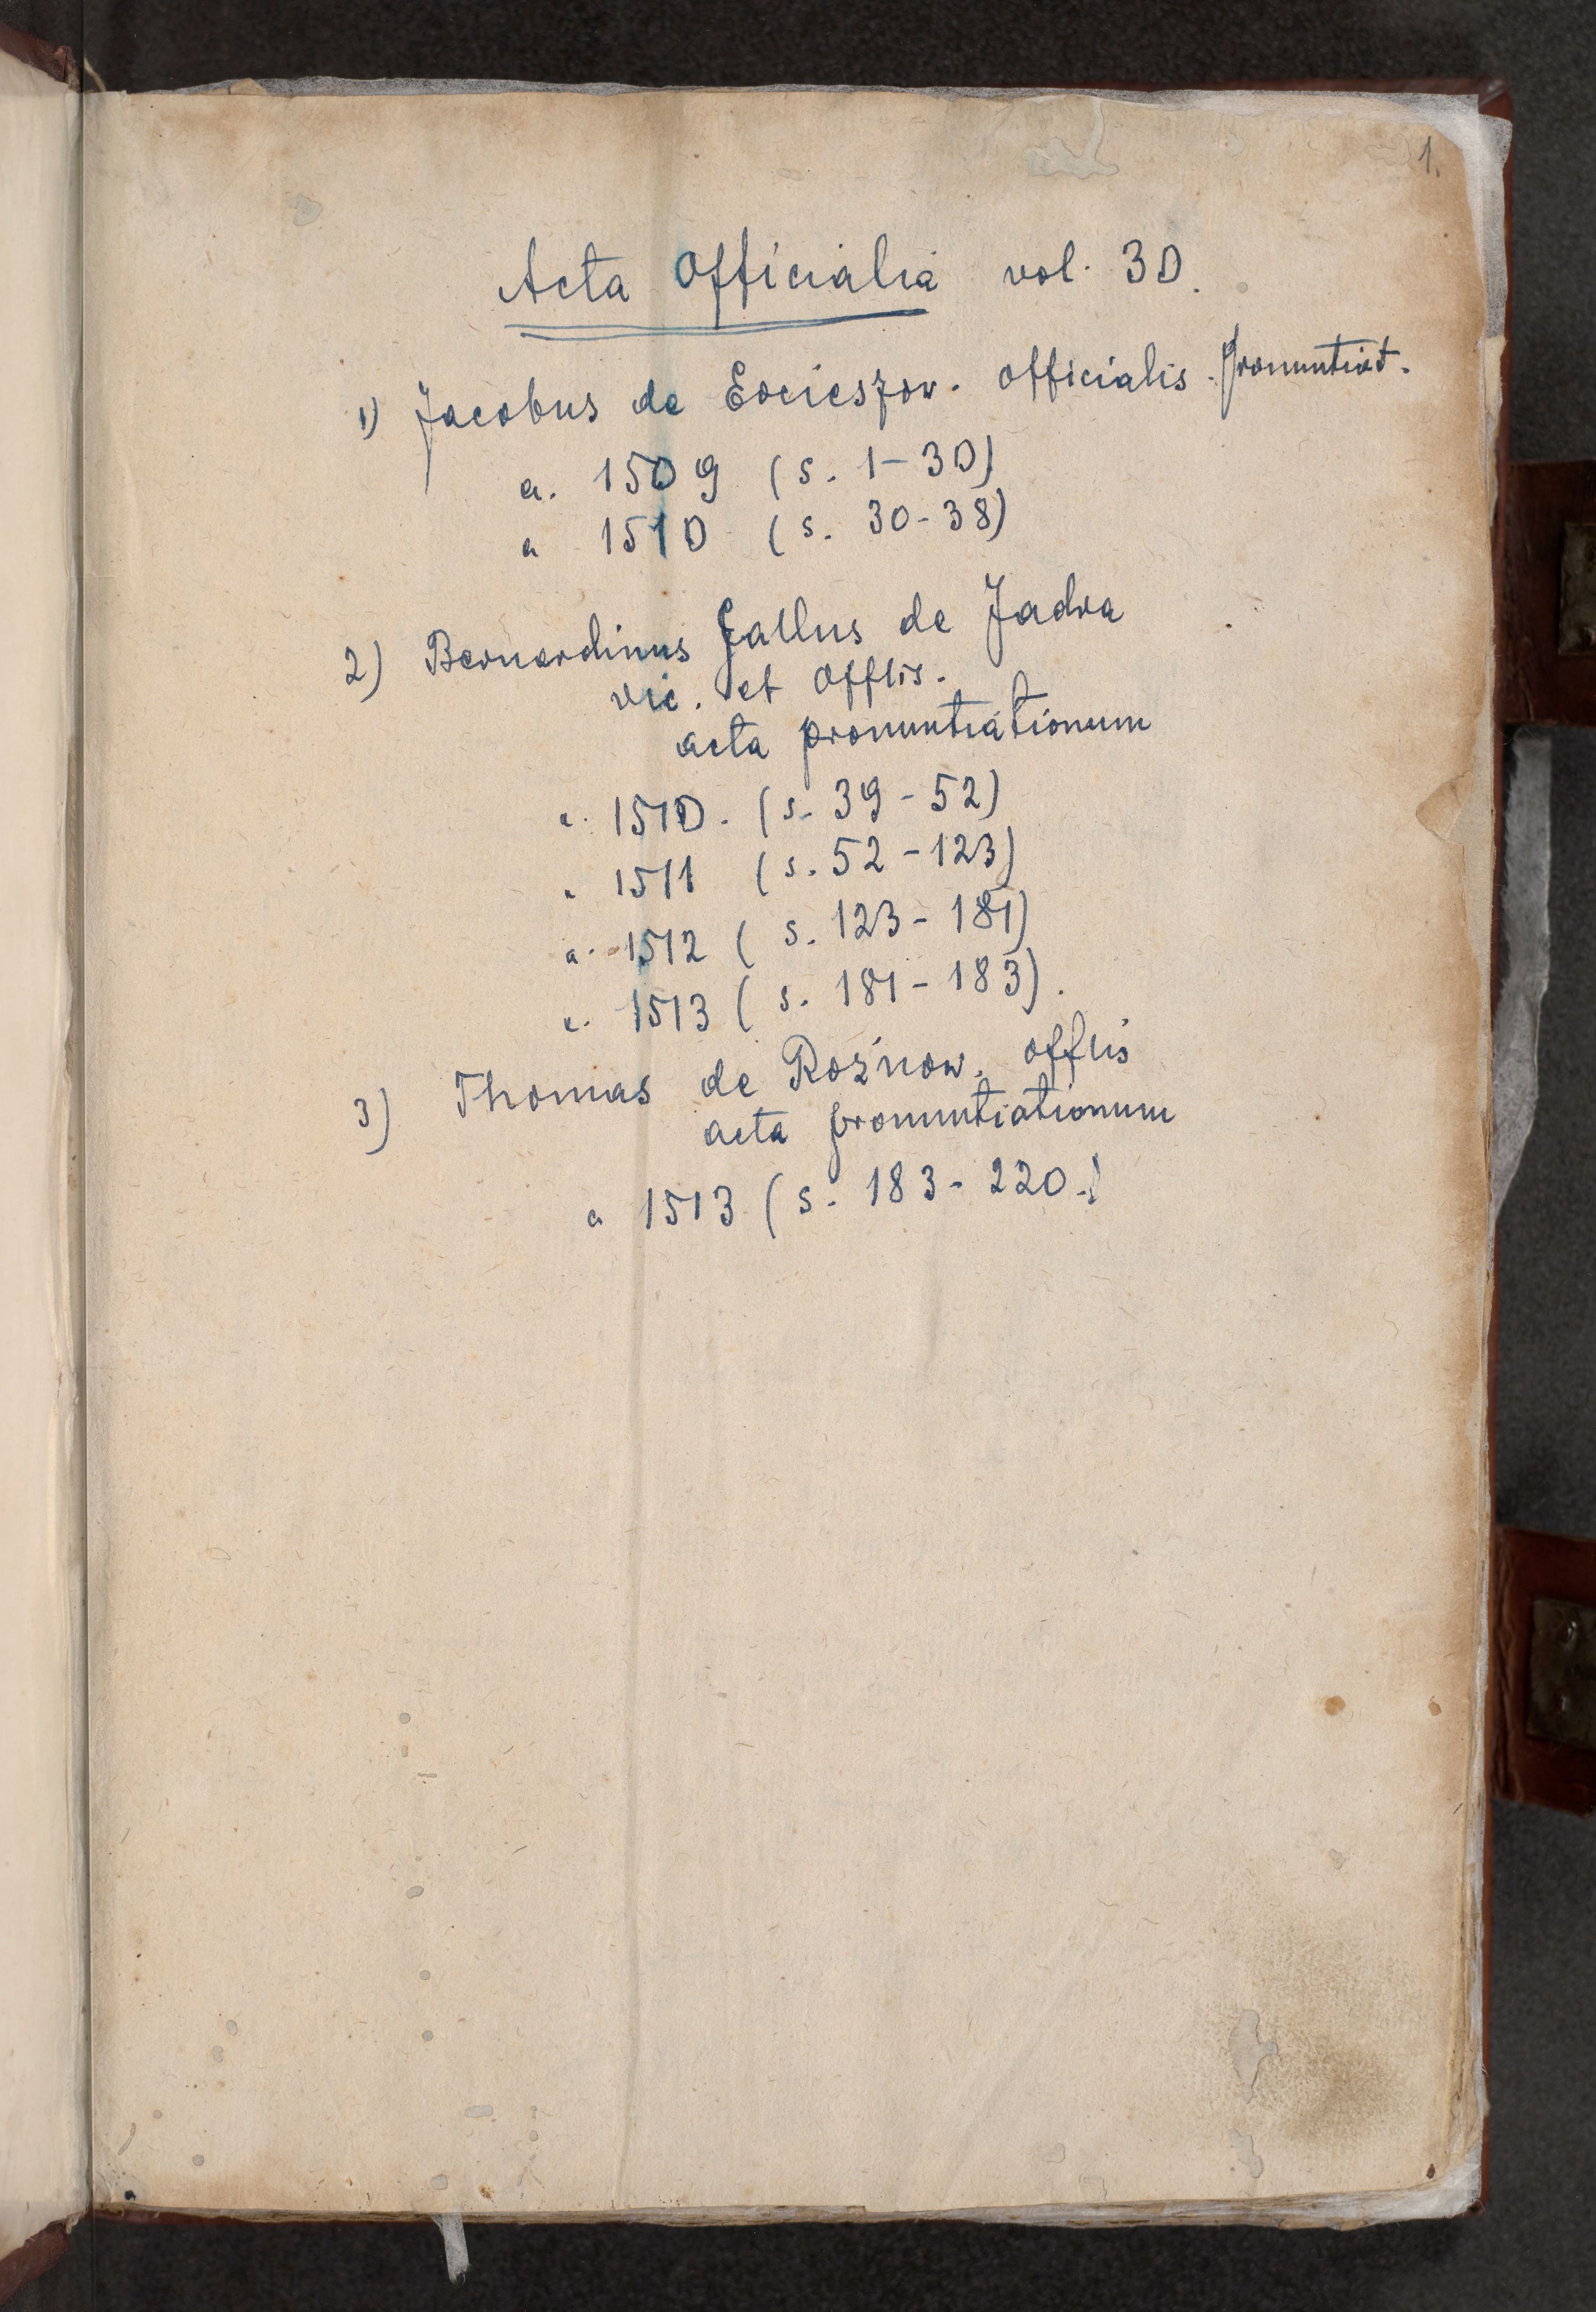 1.
Acta Officialia vol. 30.
1) Jacobus de officialis. pronuntiat.
a. 1509 (s. 1-30)
a 1510 (s. 30-38)
2) Bernardinus Gallus de Jadra
vic. et Offlis.
acta pronuntiationum
a. 1510. (s. 39-52)
a. 1511 (s. 52-123)
a. 1512 (s. 123-181)
a. 1513 (s. 181-183).
3) Thomas de Rożnow. offlis
acta pronuntiationum
a 1513 (s. 183-220.)